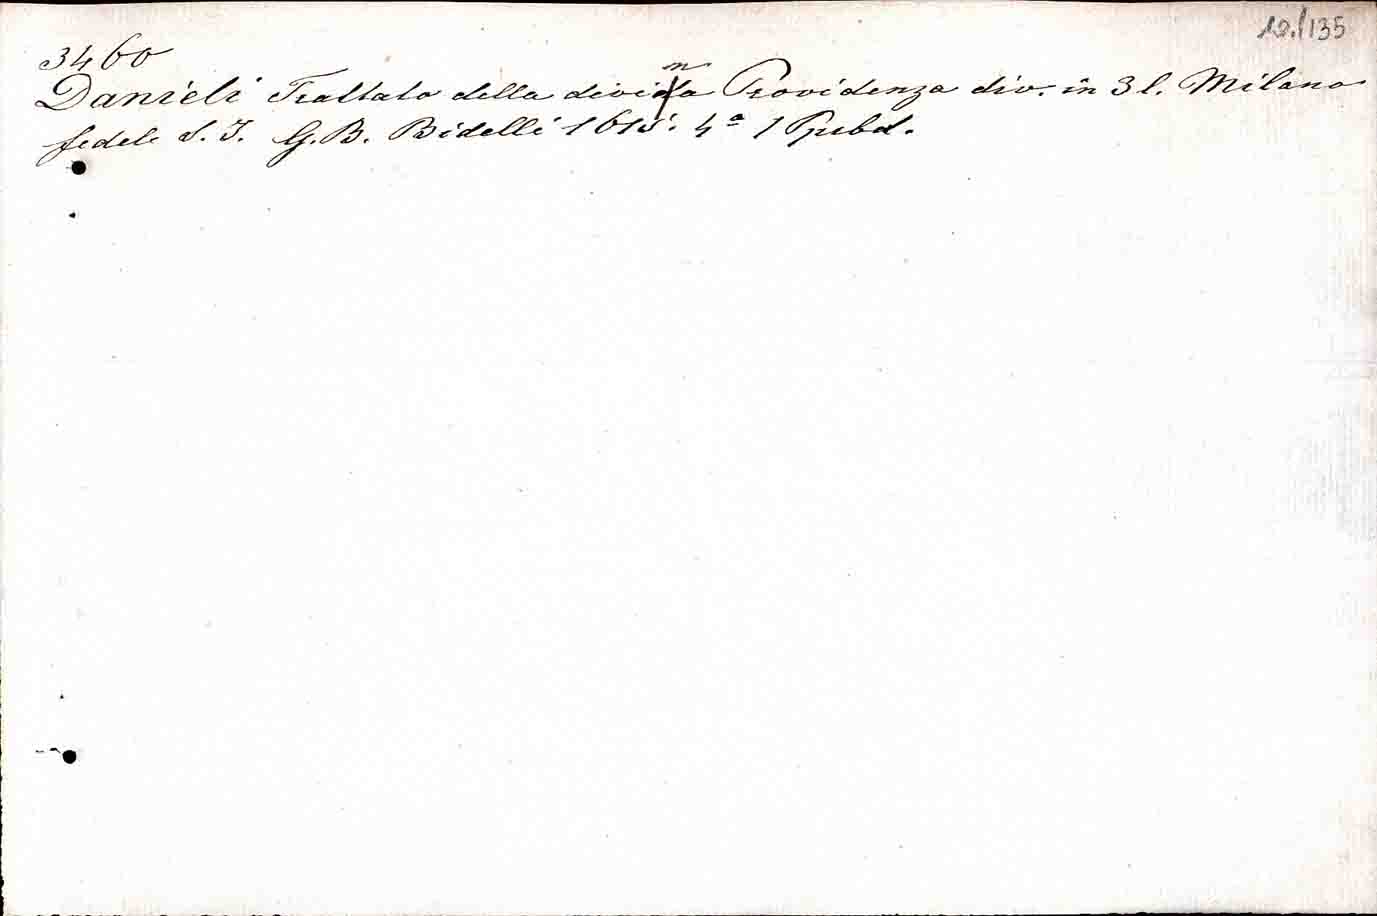 12./135
3460
Danieli Trattato della divina Providenza div. in 3 l. Milano
fedele S. J. G. B. Bidelli 1615. 4ª 1 Ppbd.